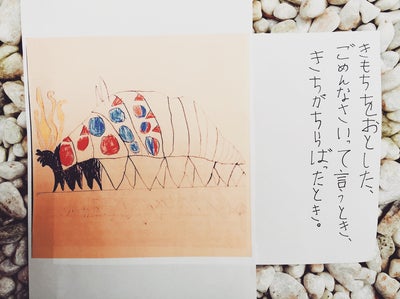 きもちをおとした、
ごめんなさいって言うとき、
きちがちらばったとき。